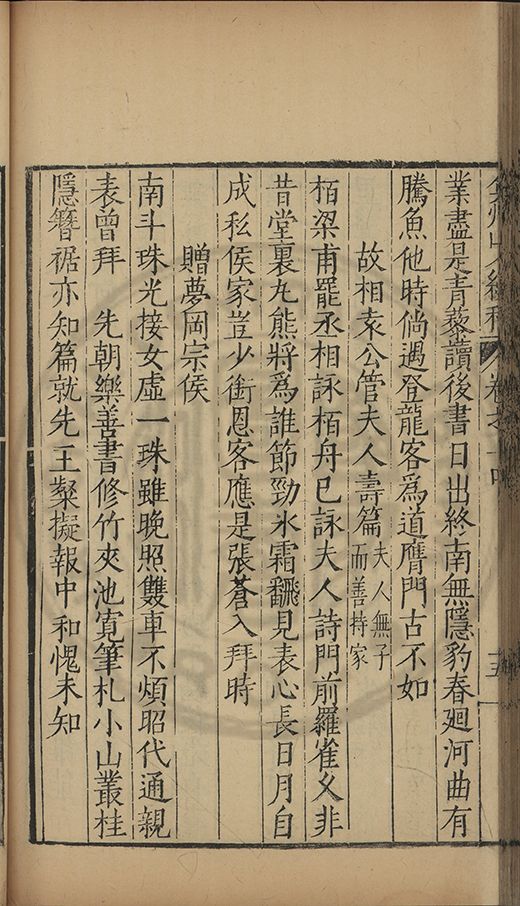 業盡是青藜讀後書日出終南無隱豹春廻河曲有
騰魚他時倘遇登龍客爲道膺門古不如
故相袁公管夫人壽篇夫人無子而善持家
栢梁甫罷丞相詠栢舟已詠夫人詩門前羅雀乂非
昔堂裏九熊將爲誰節勁氷霜飜見表心長日月自
成私侯家豈少銜恩客應是張蒼入拜時
贈夢岡宗侯
南斗珠光接女虛一珠雖晩照雙車不煩昭代通親
表曾拜　先朝樂善書修竹夾池寛筆札小山叢桂
隱簪裾亦知篇就先王粲擬報中和愧未知